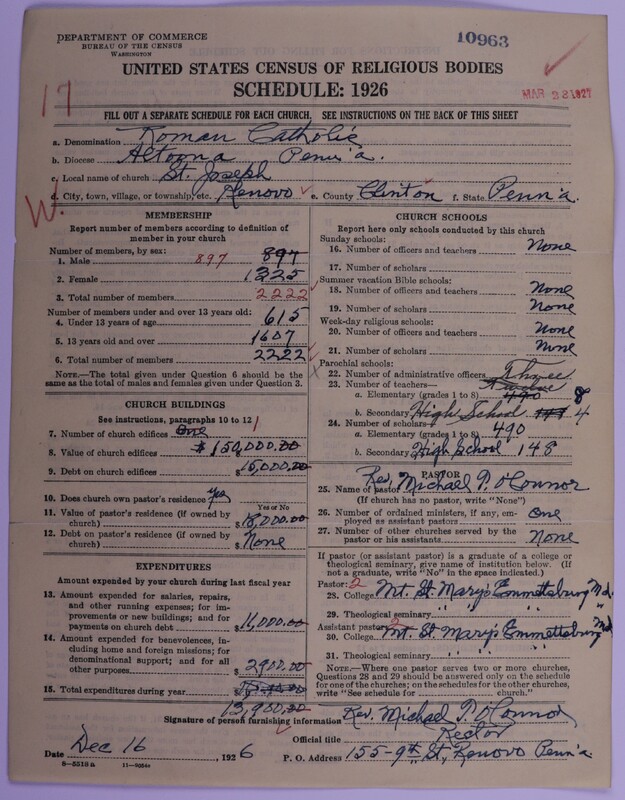 DEPARTMENT OF COMMERCE
BUREAU OF THE CENSUS
WASHINGTON
10963
UNITED STATES CENSUS OF RELIGIOUS BODIES
SCHEDULE: 1926
MAR 28 1927
17
FILL OUT A SEPARATE SCHEDULE FOR EACH CHURCH. SEE INSTRUCTIONS ON THE BACK OF THIS SHEET
a. Denomination Roman Catholic
b. Diocese Altoona Penn'a.
c. Local name of church St. Joseph
d. City, town, village, or township, etc. Renovo e. County Clinton f. State Penn'a.
W.
MEMBERSHIP
Report number of members according to definition of
member in your church
Number of members, by sex:
1. Male 897 897
2. Female 1325
3. Total number of members 2222
Number of members under and over 13 years old:
4. Under 13 years of age 615
5. 13 years old and over 1607
6. Total number of members 2222
NOTE.—The total given under Question 6 should be
same as the total of males and females given under Question 3.
CHURCH BUILDINGS
See instructions, paragraphs 10 to 12
7. Number of church edifices One 1
8. Value of church edifices $150,000.00
9. Debt on church edifices $15,000.00
10. Does church own pastor's residence? Yes
Yes or No
11. Value of pastor's residence (if owned by
church) $18,000.00
12. Debt on pastor's residence (if owned by
church) $None
EXPENDITURES
Amount expended by your church during last fiscal year
13. Amount expended for salaries, repairs,
and other running expenses; for im-
provements or new buildings; and for
payments on church debt $11,000.00
14. Amount expended for benevolences, in-
cluding home and foreign missions; for
denominational support; and for all
other purposes $2900.00
15. Total expenditures during year $
13,900.00
CHURCH SCHOOLS
Report here only schools conducted by this church
Sunday schools:
16. Number of officers and teachers None
17. Number of scholars
Summer vacation Bible schools:
18. Number of officers and teachers None
19. Number of scholars None
Week-day religious schools:
20. Number of officers and teachers None
21. Number of scholars None
Parochial schools:
22. Number of administrative officers Three
23. Number of teachers— Twelve
a. Elementary (grades 1 to 8) 490 8
b. Secondary High School 148 4
24. Number of scholars—
a. Elementary (grades 1 to 8) 490
b. Secondary High School 148
PASTOR
25. Name of pastor Rev. Michael T. O'Connor
(If church has no pastor, write "None")
26. Number of ordained ministers, if any, em-
ployed as assistant pastors One
27. Number of other churches served by the
pastor or his assistants None
If pastor (or assistant pastor) is a graduate of a college or
theological seminary, give name of institution below. (If
not a graduate, write "No" in the space indicated.)
Pastor: 2
28. College Mt. St. Mary's Emmettsburg Md.
29. Theological seminary " " " "
Assistant pastor: 2
30. College Mt. St. Mary's Emmettsburg Md
31. Theological seminary " " " "
NOTE.—Where one pastor serves two or more churches,
Questions 28 and 29 should be answered only on the schedule
for one of the churches; on the schedules for the other churches,
write "See schedule for ........ church."
Signature of person furnishing information Rev. Michael T. O'Connor
Official title Rector
Date Dec 16, 1926 P. O. Address 155-9th St, Renovo Penn'a.
8—5518a 11—9054